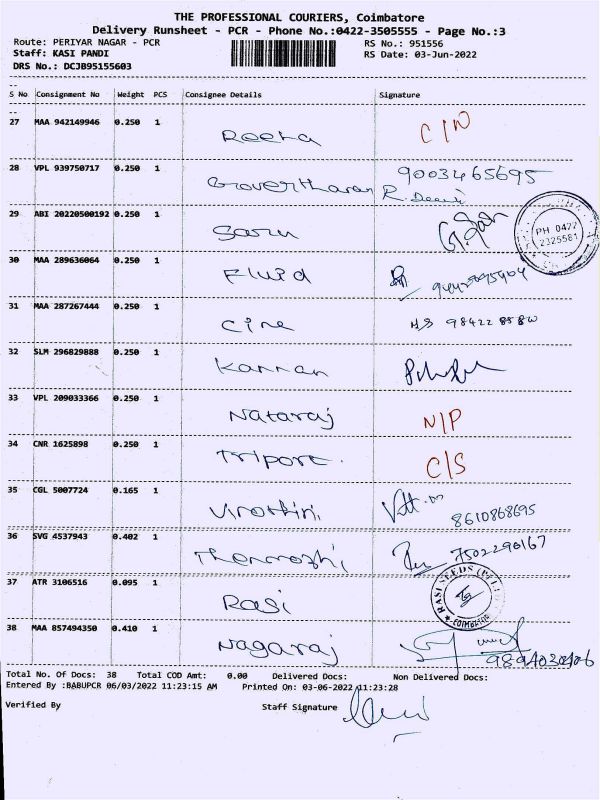 THE PROFESSIONAL COURIERS, Coimbatore
Delivery Runsheet - PCR - Phone No.:0422-3505555 - Page No.:3
Route: PERIYAR NAGAR - PCR RS No.: 951556
Staff: KASI PANDI RS Date: 03-Jun-2022
DRS No.: DCJB95155603
S No Consignment No Weight PCS Consignee Details Signature
27 MAA 942149946 0.250 1 Reeta C/N
28 VPL 939750717 0.250 1 9003465695
R. Deavi
29 ABI 20220500192 0.250 1
PH 0422
2325581
30 MAA 289636064 0.250 1 Fluid
31 MAA 287267444 0.250 1 Cine
32 SLM 296829888 0.250 1 Kannan
33 VPL 209033366 0.250 1 Nataraj N/P
34 CNR 1625898 0.250 1 Triport. C/S
35 CGL 5007724 0.165 1 8610868695
36 SVG 4537943 0.402 1 Thenmozhi 7502290167
37 ATR 3106516 0.095 1 Rasi RASI SEEDS (P) LTD COIMBATORE
38 MAA 857494350 0.410 1 Nagaraj
Total No. Of Docs: 38 Total COD Amt: 0.00 Delivered Docs: Non Delivered Docs:
Entered By :BABUPCR 06/03/2022 11:23:15 AM Printed On: 03-06-2022 11:23:28
Verified By Staff Signature